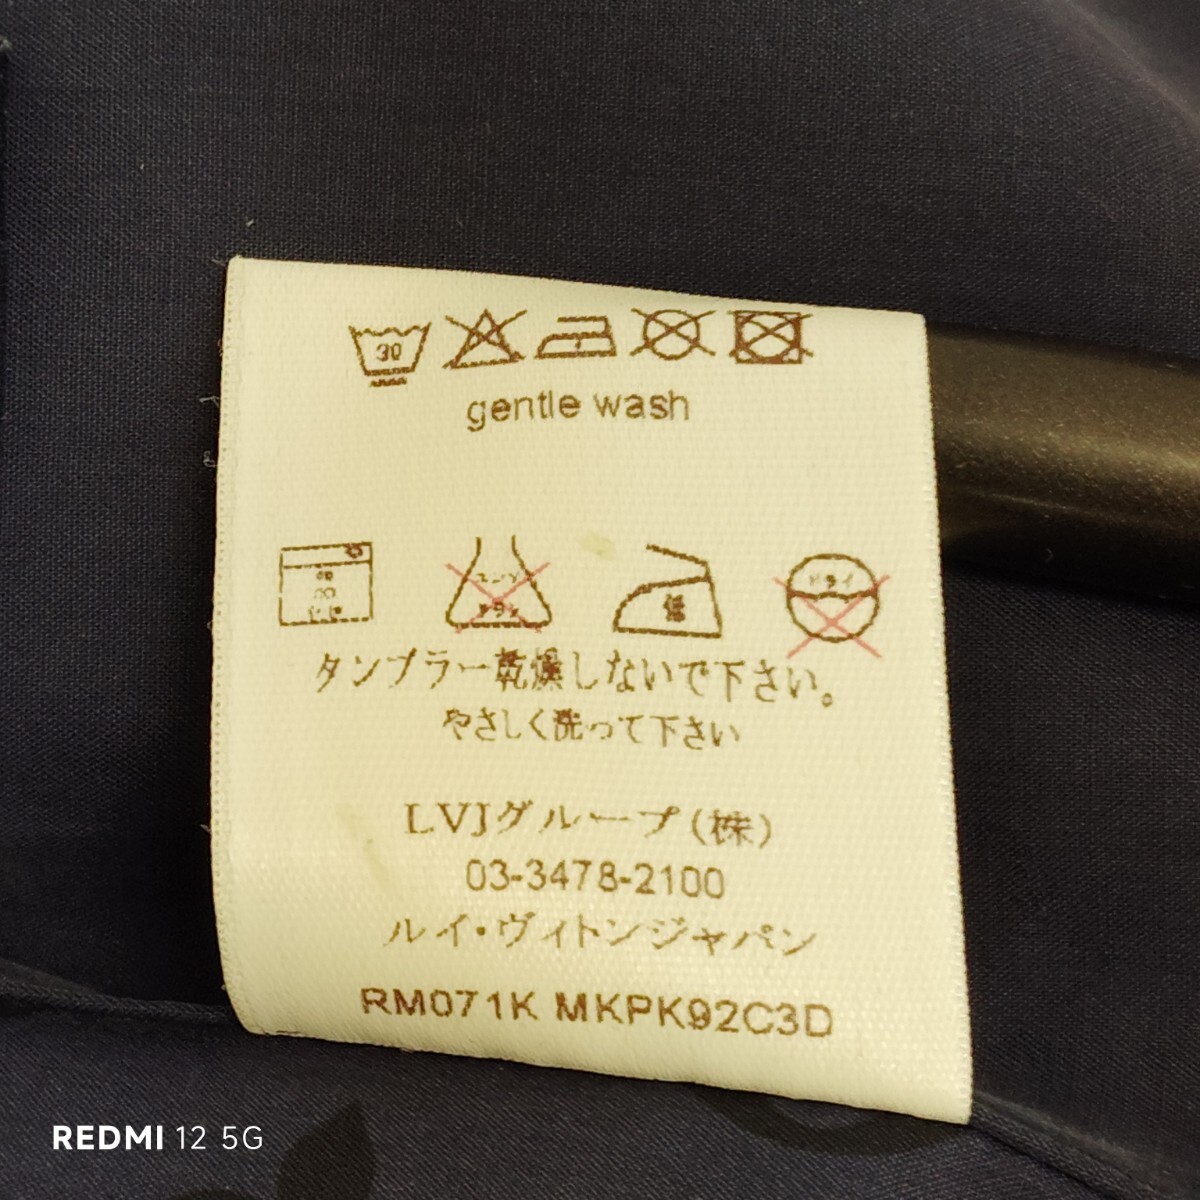 30
gentle wash
ドライ
低
タンブラー乾燥しないで下さい。
やさしく洗って下さい
LVJグループ(株)
03-3478-2100
ルイ・ヴィトンジャパン
RM071K MKPK92C3D
REDMI 12 5G